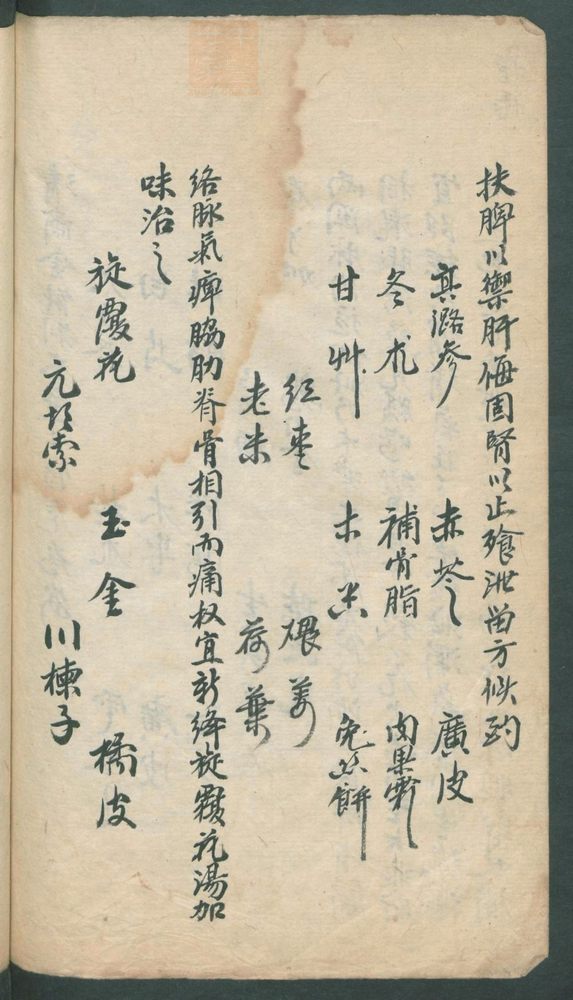 扶脾以禦肝侮固腎以止飱泄曽方候酌
真潞参　赤苓　廣皮
冬朮　補骨脂　肉果霜
甘艸　土炒　兔絲餅
紅棗　煨姜
老米　荷葉
絡脉氣痺脇肋脊骨相引而痛权宜新絳旋覆花湯加
味治之
旋覆花　玉金　橘皮
元胡索　川楝子